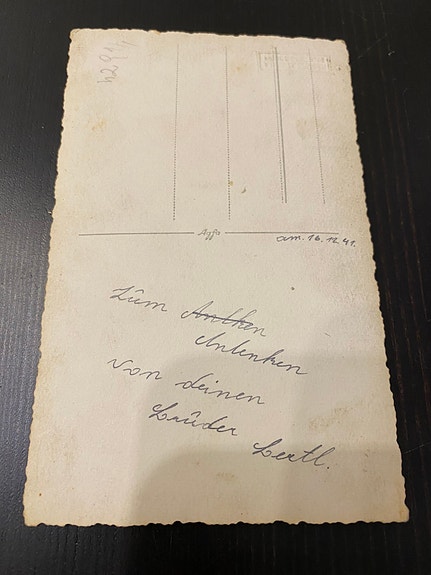 Agfa
am. 16.12.41.
Zum Anthen
Andenken
von deinen
Bruder Bertl.